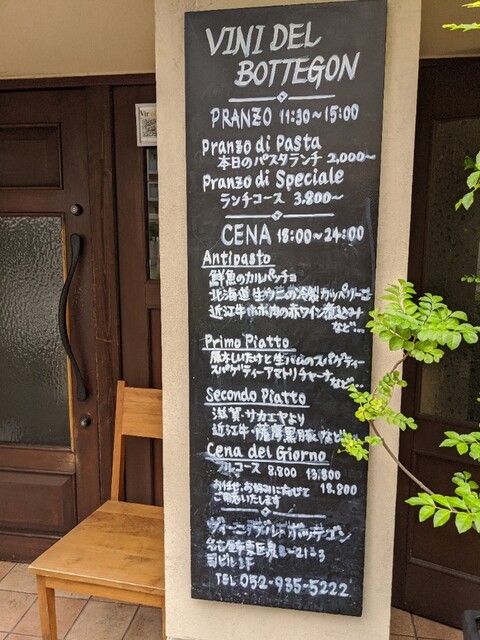 VINI DEL
BOTTEGON
PRANZO 11:30~15:00
Pranzo di Pasta
本日のパスタランチ 2,000~
Pranzo di Speciale
ランチコース 3.800~
CENA 18:00~24:00
Antipasto
鮮魚のカルパッチョ
北海道生ウニの冷製カッペリーニ
近江牛ホホ肉の赤ワイン煮込み
など...
Primo Piatto
原木しいたけと生ハムのスパゲティー
スパゲティーアマトリチャーナなど...
Secondo Piatto
滋賀・サカエヤより
近江牛・薩摩黒豚など
Cena del Giorno
フルコース 8.800 13.800
おまかせ、お好みに応じて 18.800
ご用意いたします
ヴィーニ デル ボッテゴン
名古屋市東区泉
司ビル1F
TEL 052-935-5222